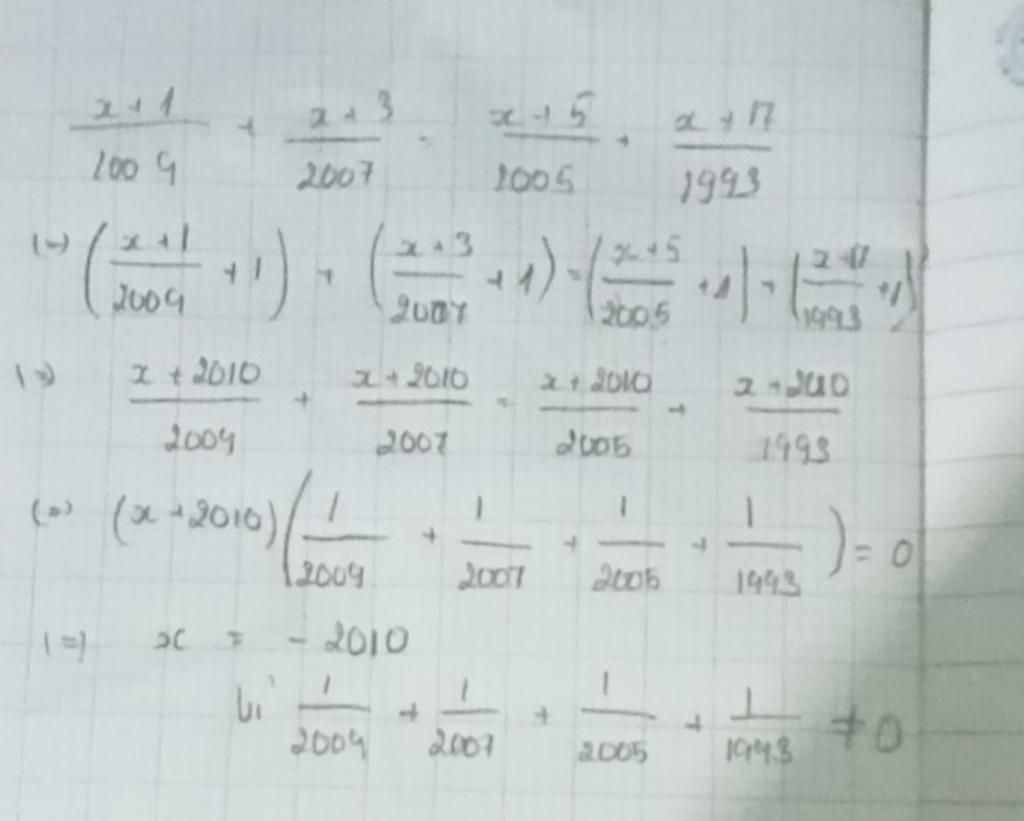 (x+1)/2009 + (x+3)/2007 = (x+5)/2005 + (x+17)/1993
(=) ((x+1)/2009 + 1) + ((x+3)/2007 + 1) = ((x+5)/2005 + 1) + ((x+17)/1993 + 1)
(=) (x+2010)/2009 + (x+2010)/2007 = (x+2010)/2005 + (x+2010)/1993
(=) (x+2010)(1/2009 + 1/2007 + 1/2005 + 1/1993) = 0
(=) x = - 2010
Vì 1/2009 + 1/2007 + 1/2005 + 1/1993 ≠ 0